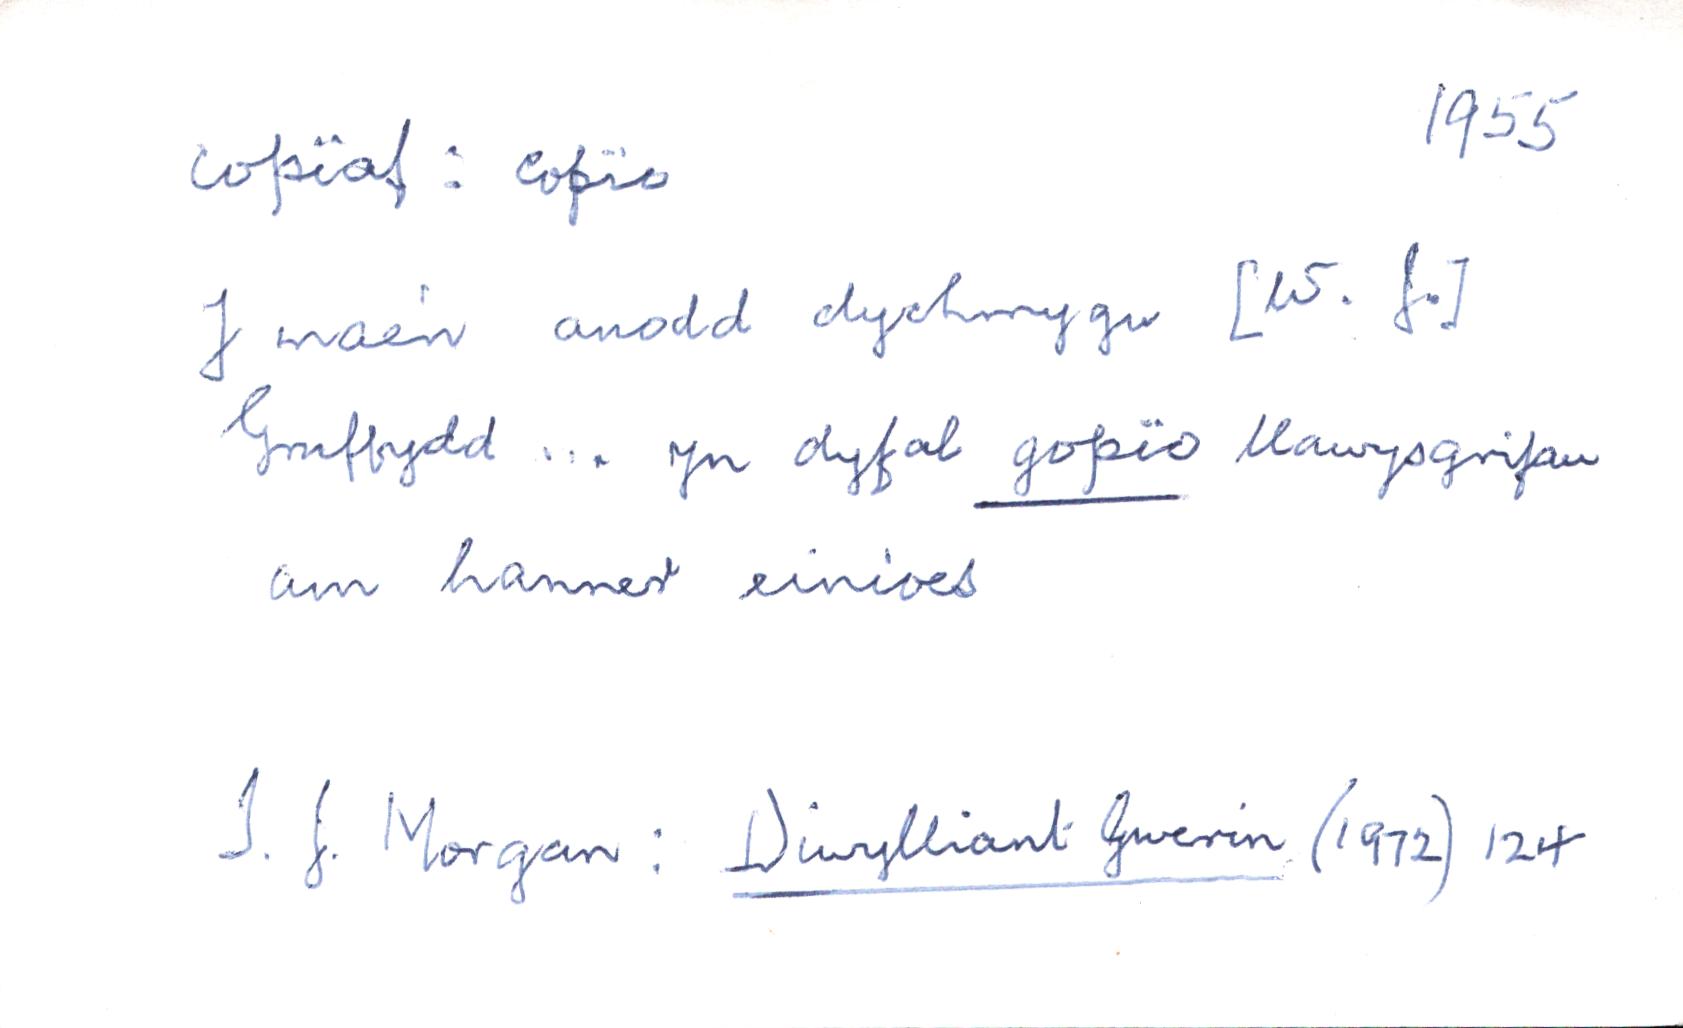 1955
copïaf : copïo
Y mae'n anodd dychmygu [W. J.]
Gruffydd ... yn dyfal gopïo llawysgrifau
am hanner einioes
T. J. Morgan : Diwylliant Gwerin (1972) 124